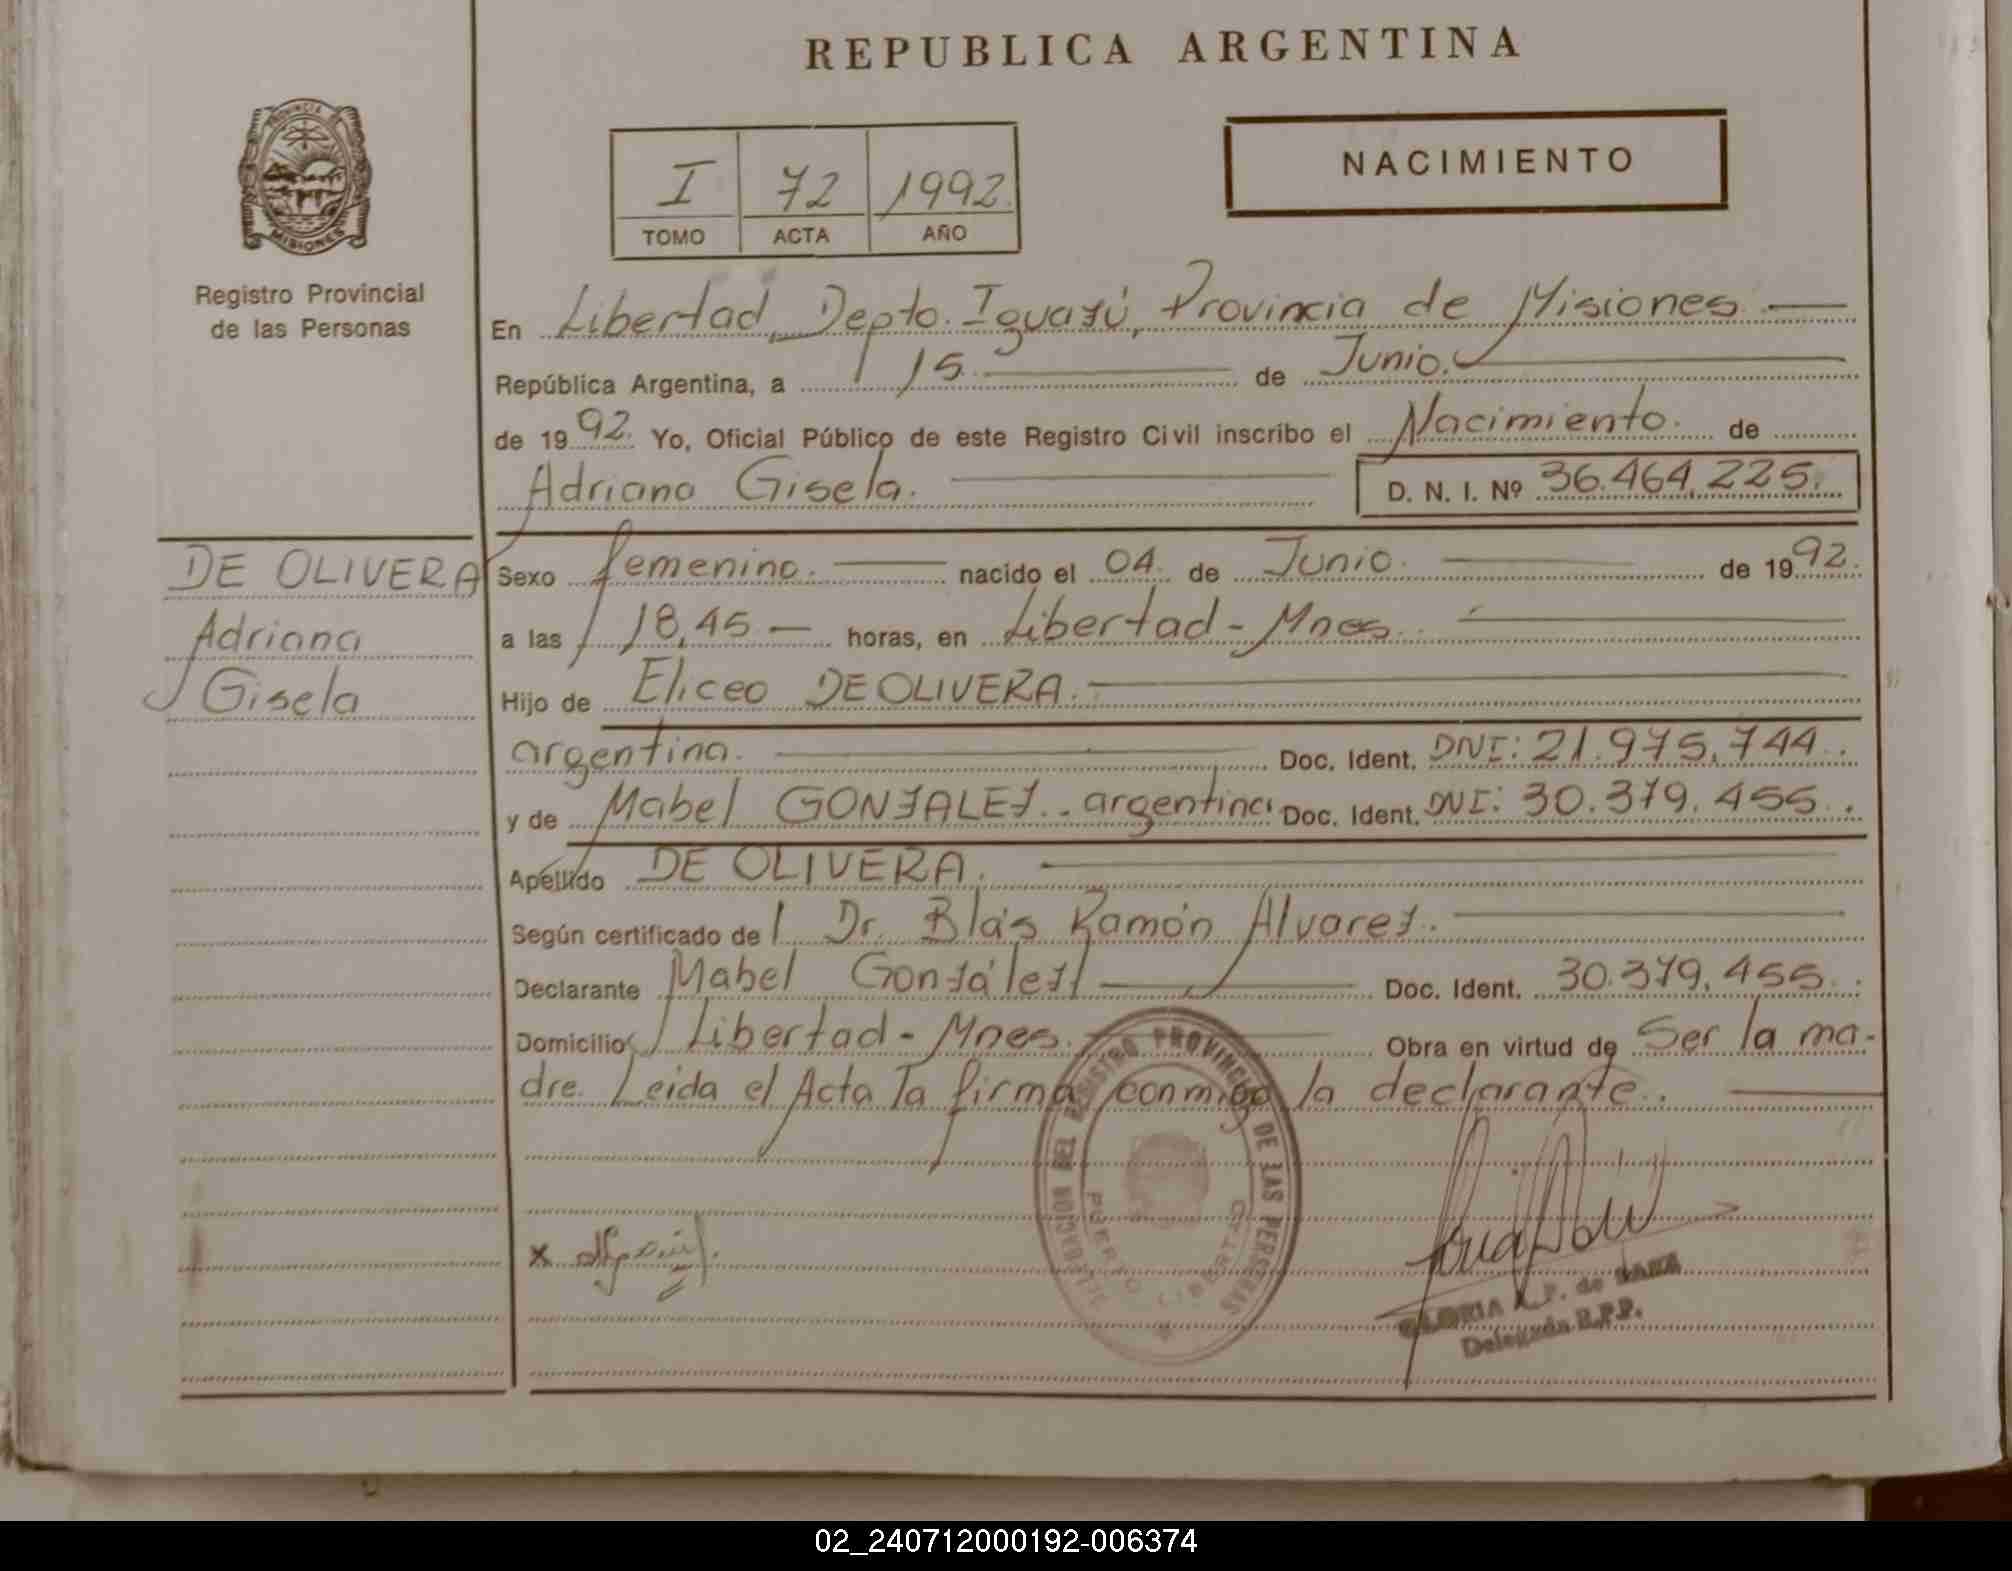 REPUBLICA ARGENTINA
PROVINCIA
MISIONES
Registro Provincial
de las Personas
I 72 1992.
TOMO ACTA AÑO
NACIMIENTO
En Libertad, Depto. Iguazú, Provincia de Misiones.
República Argentina, a 15 de Junio.
de 1992. Yo, Oficial Público de este Registro Civil inscribo el Nacimiento. de
Adriana Gisela. D. N. I. Nº 36.464.225.
DE OLIVERA
Adriana
Gisela
Sexo femenino. nacido el 04. de Junio. de 1992.
a las 18,45 — horas, en Libertad - Mnes.
Hijo de Eliceo DE OLIVERA.
argentina. Doc. Ident. DNI: 21.975.744.
y de Mabel GONZALEZ.. argentina Doc. Ident. DNI: 30.379.455.
Apellido DE OLIVERA.
Según certificado del Dr. Blás Ramón Alvarez.
Declarante Mabel González Doc. Ident. 30.379.455.
Domicilio Libertad - Mnes. Obra en virtud de Ser la ma-
dre. Leida el Acta la firma conmigo la declarante.
DELEGACION DEL REGISTRO PROVINCIAL DE LAS PERSONAS
PUERTO LIBERTAD
x
GLORIA P. de
Delegada R.P.P.
02_240712000192-006374